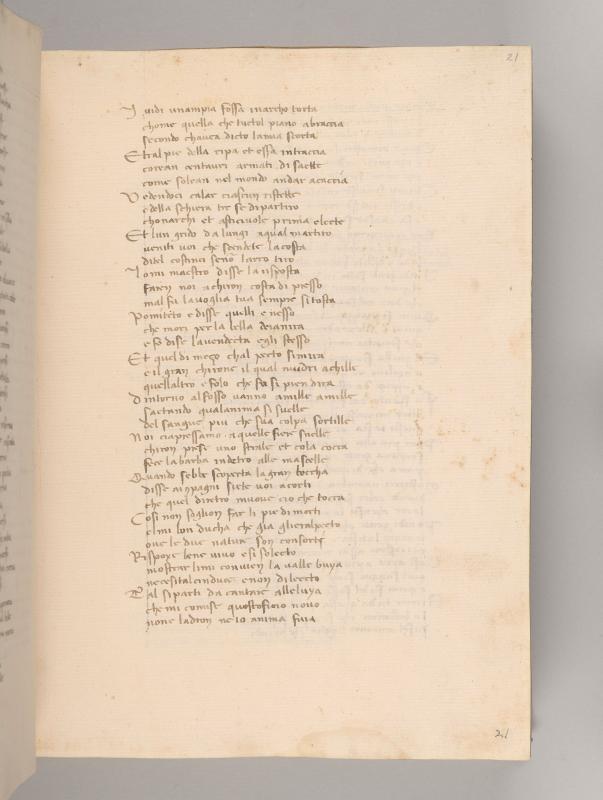 21
I vidi unampia fossa inarcho torta
chome quella che tuctol piano abraccia
secondo chavea dicto lamia scorta
Etralpie della ripa et essa intraccia
corean centauri armati di saette
come solean nel mondo andar acaccia
Vedendoci calar ciascun ristette
edella schiera tre se dipartiro
chonarchi et asticivole prima elcete
Et lun grido dalungi aqual martiro
veniti voi che scendete lacosta
ditel costinci seno larco tiro
Lo mi maestro disse larisposta
faren noi achiron costa di presso
mal fu lavoglia tua sempre si tosta
Po mi teto e disse quelli e nesso
che mori per la bella deianira
e fe di se lavendecta egli stesso
Et quel di mezo chal pecto simira
e il gran chirone il qual nudri achille
quellaltro e folo che fu si pien dira
Dintorno alfosso vanno amille amille
saectando qualanima si svelle
del sangue piu che sua colpa sortille
Noi ciapressamo aquelle fiere snelle
chiron prese uno strale et cola cocca
fece la barba indetro alle mascelle
Quando sebbe scoperta la gran boccha
disse aimpagni siete voi acorti
che quel diretro muove cio che tocca
Cosi non soglion far li pie di morti
elmi bon ducha che gia glieralpecto
ove le due nature son consorti
Rispoxe bene vivo e si solecto
mostrar limi convien la valle buya
necesitalcinduce enon dilecto
Tal siparti da cantare alleluya
che mi comise questoficio novo
none ladron ne io anima fuia
21